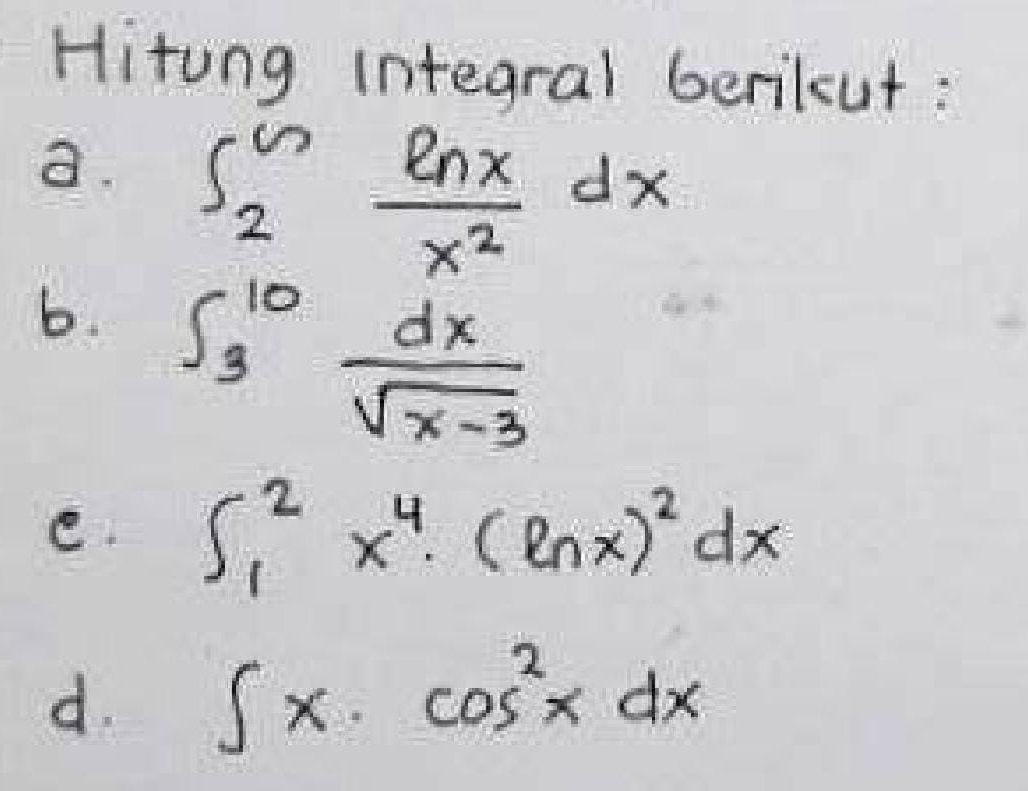 Hitung Integral berikut :
a. ∫₂^∞ ln x / x² dx
b. ∫₃¹⁰ dx / √(x-3)
c. ∫₁² x⁴. (ln x)² dx
d. ∫ x. cos²x dx